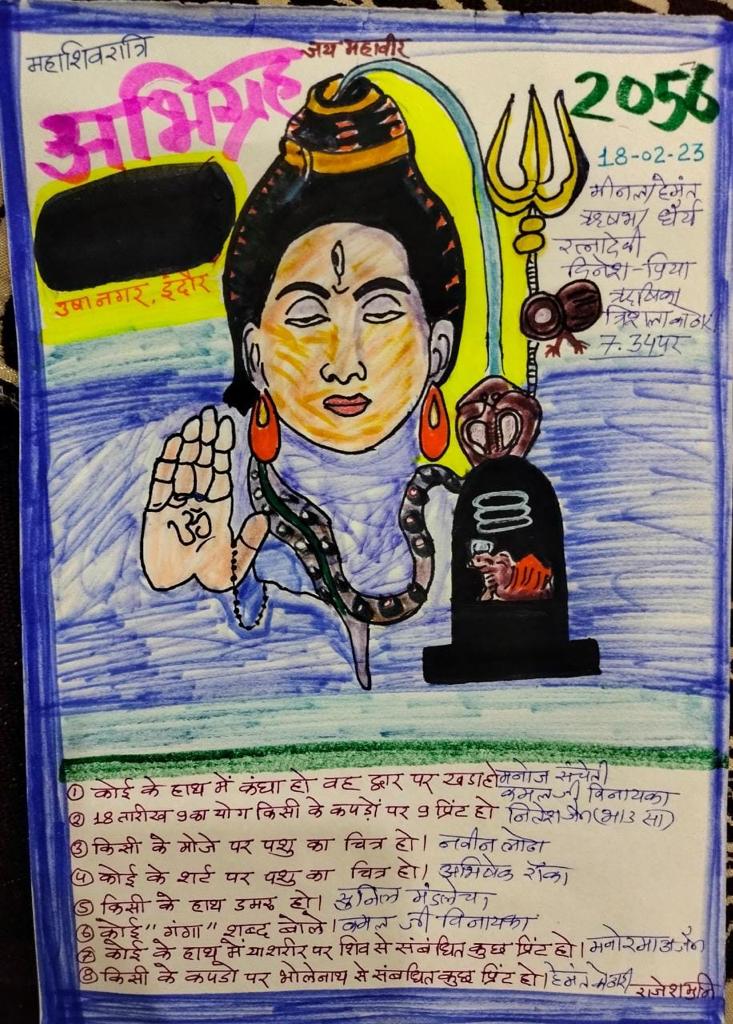 महाशिवरात्रि
जय महावीर
अभिग्रह
2056
18-02-23
मीनल/हेमंत
ऋषभ/ धैर्य
रत्नादेवी
दिनेश-प्रिया
ऋषिका
त्रिशला कोठारी
7.34पर
उषा नगर, इंदौर
ॐ
① कोई के हाथ में कंघा हो वह द्वार पर खडा हो मनोज संचेती
कमल जी विनायका
② 18 तारीख 9 का योग किसी के कपड़ों पर 9 प्रिंट हो नितेश जैन(भाउ सा)
③ किसी के मोजे पर पशु का चित्र हो। नवीन लोढा
④ कोई के शर्ट पर पशु का चित्र हो। अभिषेक राँका
⑤ किसी के हाथ डमरु हो। सुनिल मंडलेचा
⑥ कोई "गंगा" शब्द बोले। कमल जी विनायका
⑦ कोई के हाथ में या शरीर पर शिव से संबंधित कुछ प्रिंट हो। मनोरमा जैन
⑧ किसी के कपडो पर भोलेनाथ से संबंधित कुछ प्रिंट हो। हेमंत
राजेशमुनि